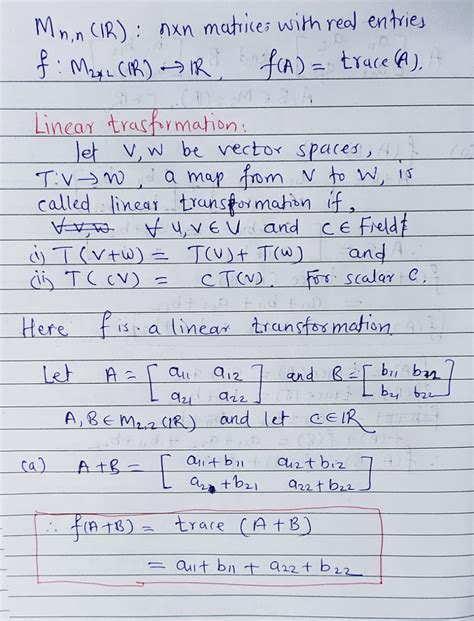 Mn,n (IR) : nxn matrices with real entries
f : M2×2 (IR) → IR, f(A) = trace (A).
Linear trasformation:
let V, W be vector spaces,
T: V → W, a map from V to W, is
called linear transformation if,
∀ v, w, ∀ u, v ∈ V and c ∈ Field f
(i) T (v+w) = T(v) + T(w) and
(ii) T (cv) = c T(v). For scalar c.
Here f is a linear transformation.
Let A = [ a11 a12 ] and B = [ b11 b12 ]
[ a21 a22 ] [ b21 b22 ]
A, B ∈ M2,2 (IR) and let c ∈ IR
(a) A+B = [ a11+b11 a12+b12 ]
[ a21+b21 a22+b22 ]
∴ f(A+B) = trace (A+B)
= a11+b11 + a22+b22